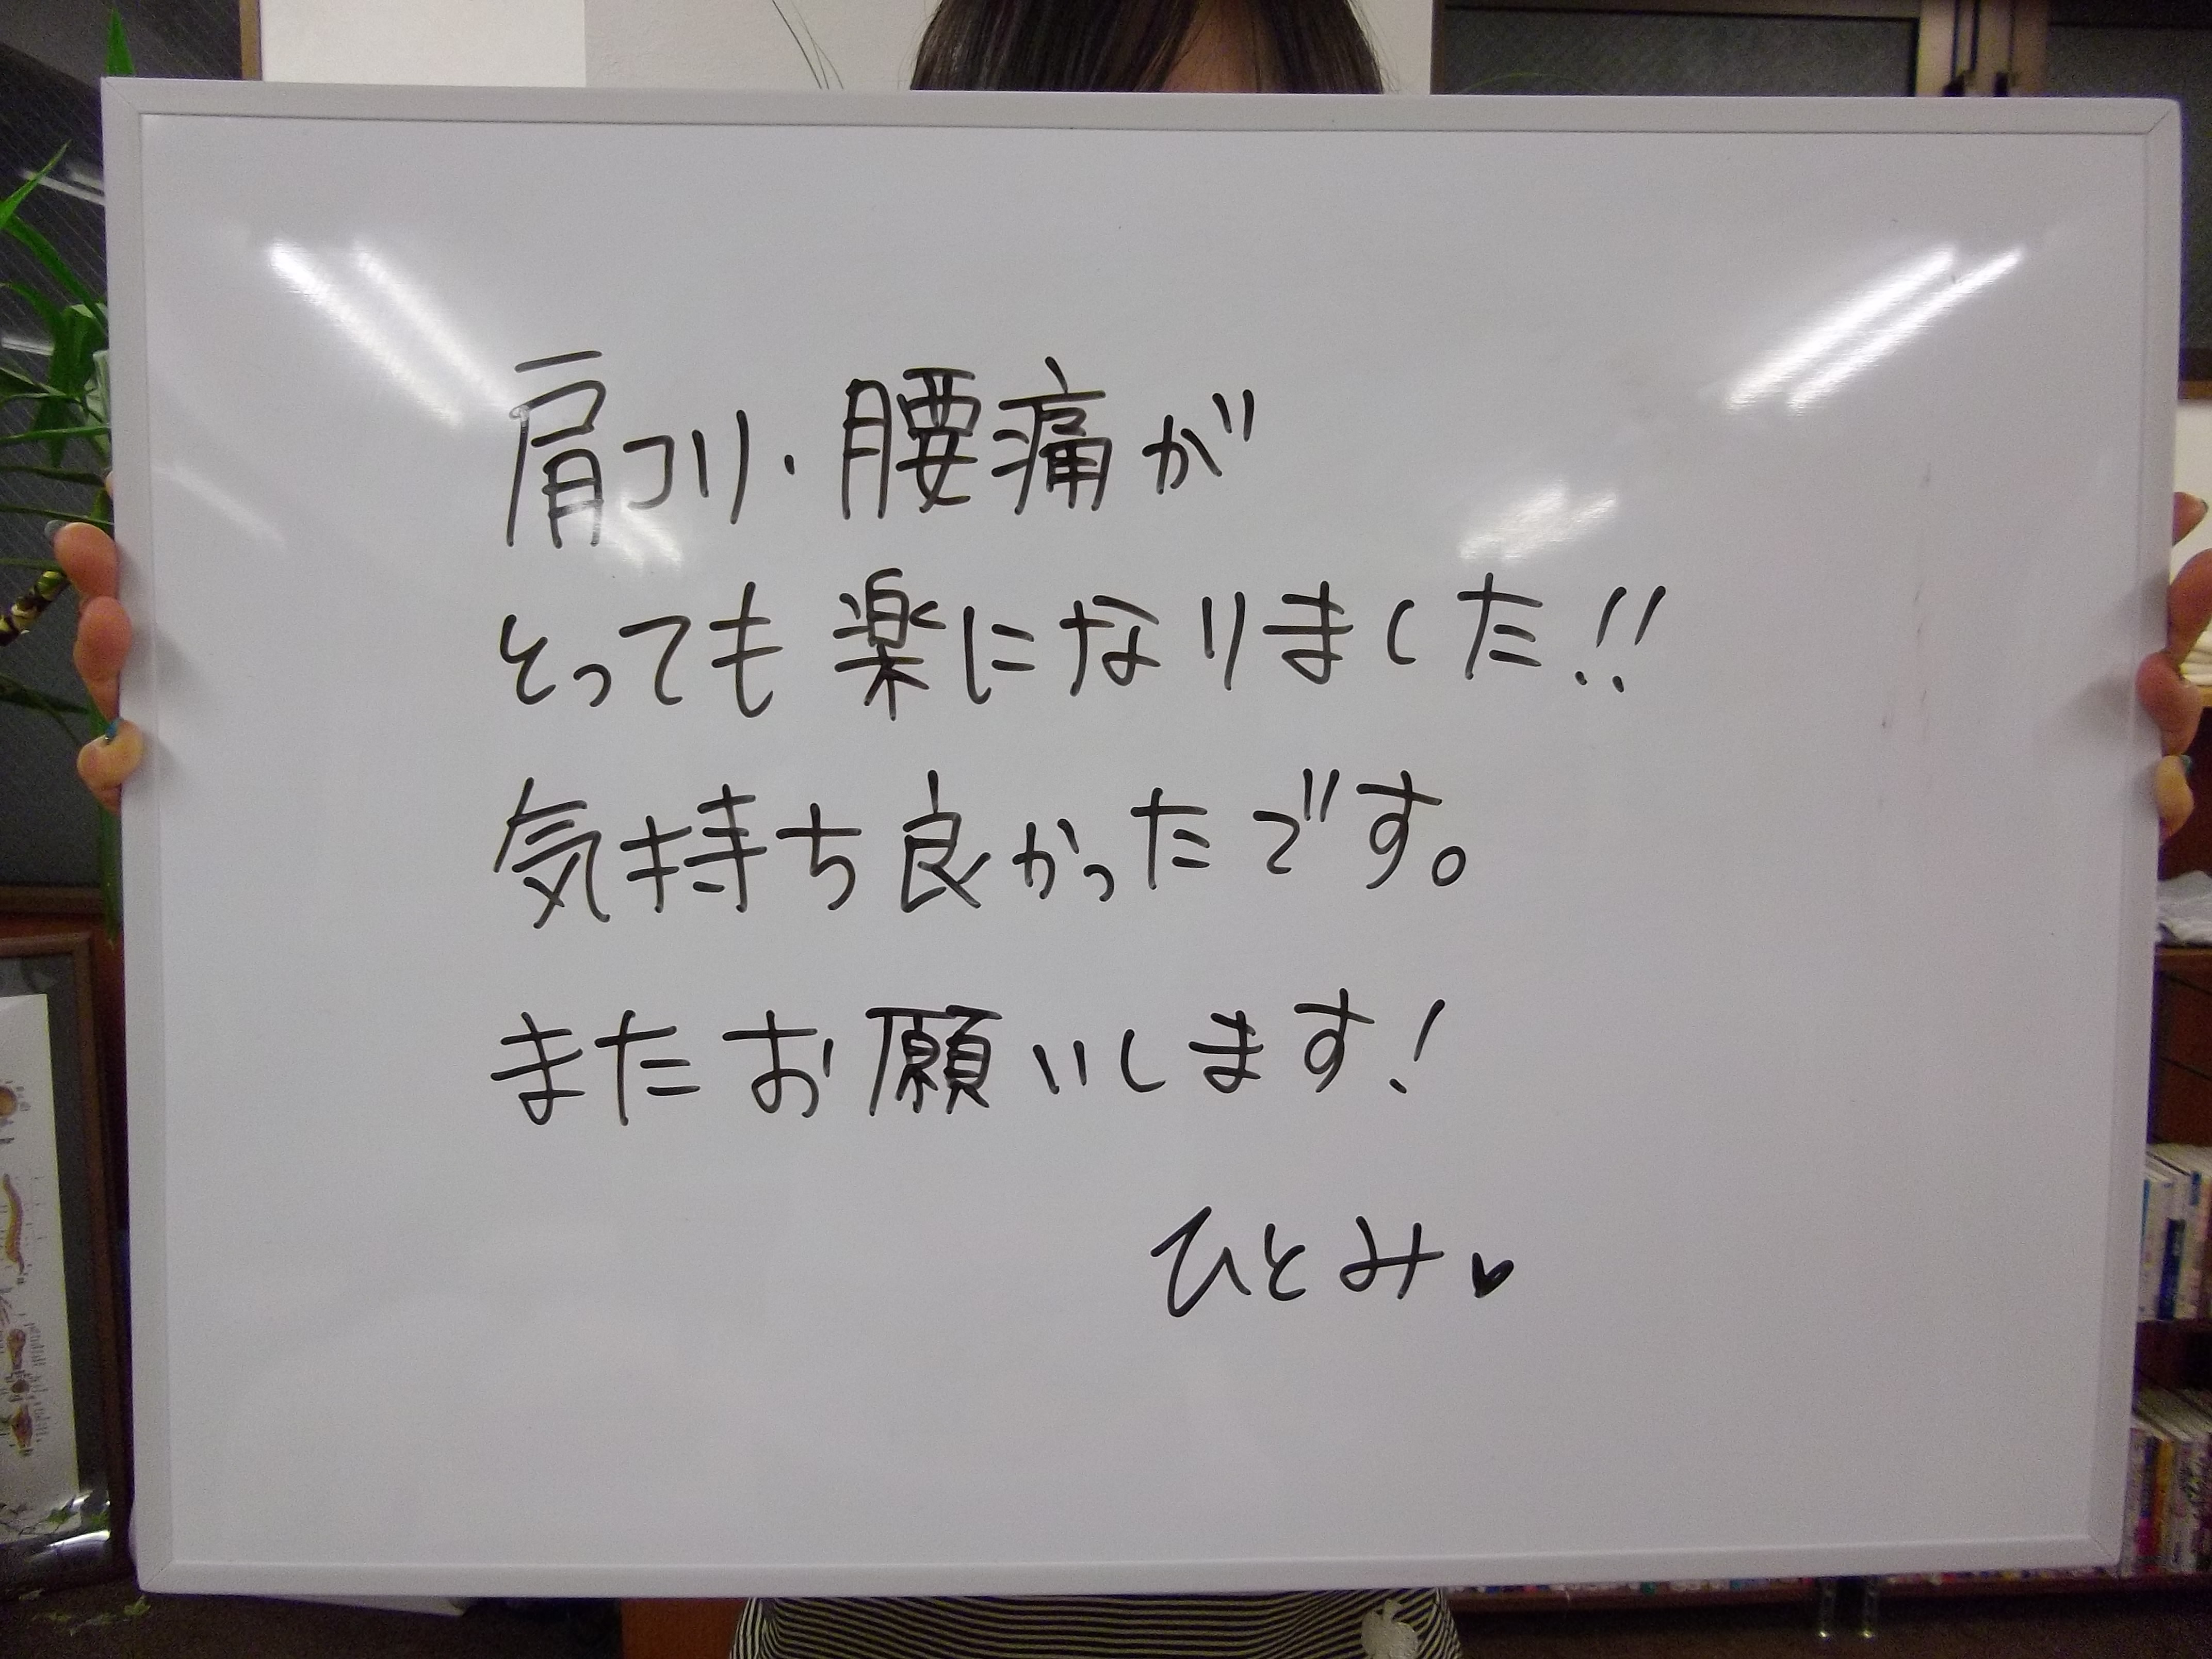 肩コリ・腰痛が
とっても楽になりました!!
気持ち良かったです。
またお願いします!
ひとみ♥